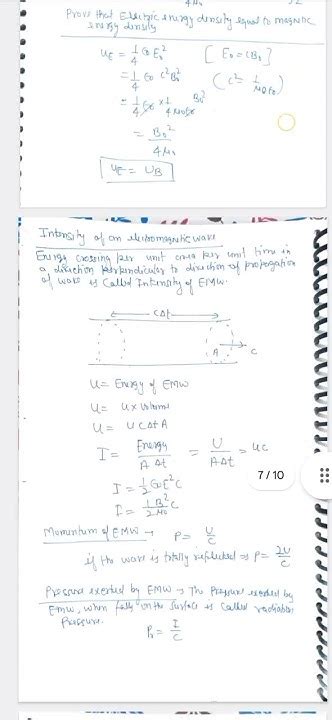 Prove that Electric energy density equal to magnetic
energy density
uE = 1/4 ε0 E0² [ E0 = CB0 ]
= 1/4 ε0 C²B0² ( C² = 1/μ0ε0 )
= B0²/4μ0
uE = uB
Intensity of an electromagnetic wave
Energy crossing per unit area per unit time in
a direction perpendicular to direction of propagation
of wave is Called Intensity of EMW.
CΔt
A C
U = Energy of EMW
U = u x Volume
U = U CΔt A
I = Energy/A Δt = U/AΔt = uc
I = 1/2 ε0E²C
I = 1/2 B²/μ0 C
7/10
Momentum of EMW → P = U/C
if the wave is totally reflected → P = 2U/C
Pressure exerted by EMW → The Pressure exerted by
EMW, when falls on the surface is Called radiation
Pressure.
Pr = I/C